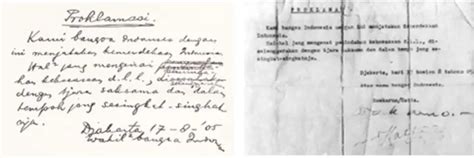 Proklamasi.
Kami bangsa Indonesia dengan
ini menjatakan kemerdekaan Indonesia.
Hal² jang mengenai
kekoeasaan d.l.l.,
dengan tjara saksama dan dalam
tempoh jang sesingkat-singkat
nja.
Djakarta 17 - 8 - '05
Wakil² bangsa Indon
PROKLAMASI
Kami bangsa Indonesia dengan ini menjatakan Kemerdekaan
Indonesia.
Hal-hal jang mengenai pemindahan kekoeasaan d.l.l., di-
selenggarakan dengan tjara saksama dan dalam tempo jang se-
singkat-singkatnja.
Djakarta, hari 17 boelan 8 tahoen
Atas nama bangsa Indonesia.
Soekarno/Hatta.